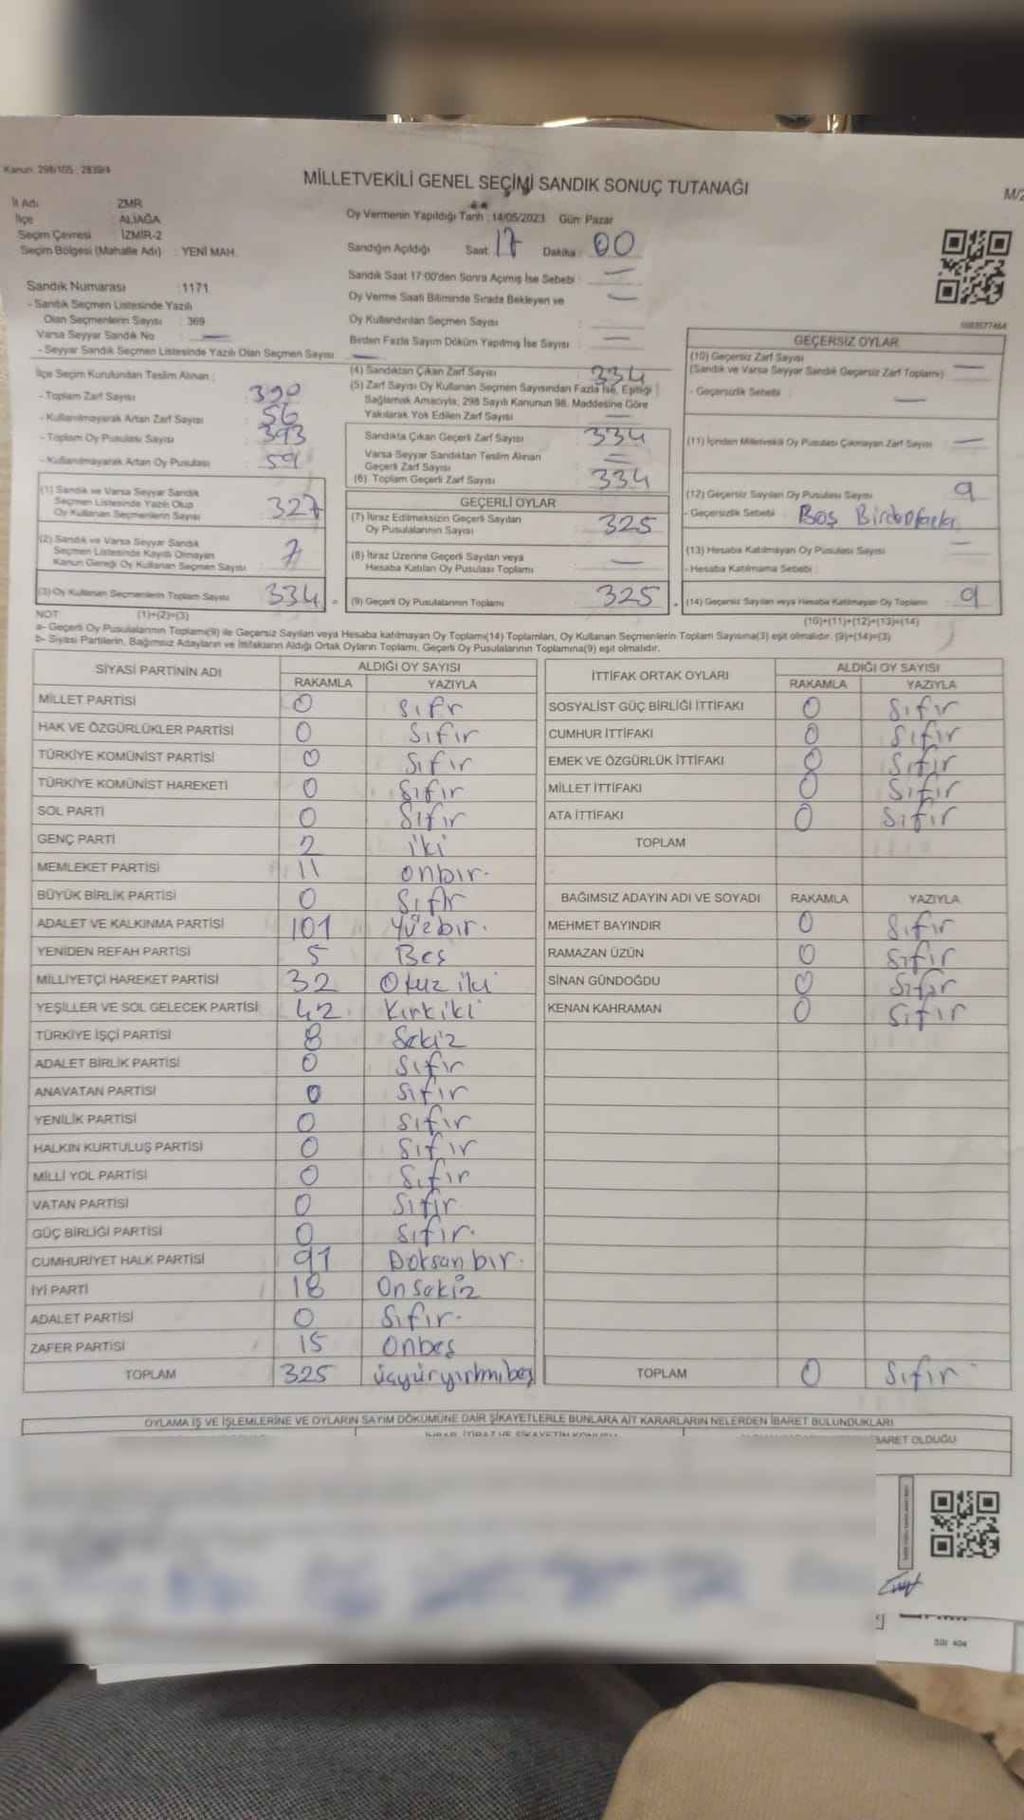 Kanun: 298/105 : 2839/4
MİLLETVEKİLİ GENEL SEÇİMİ SANDIK SONUÇ TUTANAĞI
M/2
İl Adı : ZMR
İlçe : ALİAĞA
Seçim Çevresi : İZMİR-2
Seçim Bölgesi (Mahalle Adı) : YENİ MAH.
Oy Vermenin Yapıldığı Tarih : 14/05/2023 Gün: Pazar
Sandığın Açıldığı Saat: 17 Dakika: 00
Sandık Saat 17:00'den Sonra Açımış İse Sebebi : —
Oy Verme Saati Bitiminde Sırada Bekleyen ve —
Oy Kullandırılan Seçmen Sayısı
Birden Fazla Sayım Döküm Yapılmış İse Sayısı : —
Sandık Numarası : 1171
- Sandık Seçmen Listesinde Yazılı
Olan Seçmenlerin Sayısı : 369
Varsa Seyyar Sandık No : —
- Seyyar Sandık Seçmen Listesinde Yazılı Olan Seçmen Sayısı —
İlçe Seçim Kurulundan Teslim Alınan :
- Toplam Zarf Sayısı 390
- Kullanılmayarak Artan Zarf Sayısı 56
- Toplam Oy Pusulası Sayısı 393
- Kullanılmayarak Artan Oy Pusulası 59
(1) Sandık ve Varsa Seyyar Sandık
Seçmen Listesinde Yazılı Olup
Oy Kullanan Seçmenlerin Sayısı 327
(2) Sandık ve Varsa Seyyar Sandık
Seçmen Listesinde Kayıtlı Olmayan
Kanun Gereği Oy Kullanan Seçmen Sayısı 7
(3) Oy Kullanan Seçmenlerin Toplam Sayısı 334
(4) Sandıktan Çıkan Zarf Sayısı 334
(5) Zarf Sayısı Oy Kullanan Seçmen Sayısından Fazla İse, Eşitliği
Sağlamak Amacıyla, 298 Sayılı Kanunun 98. Maddesine Göre
Yakılarak Yok Edilen Zarf Sayısı —
Sandıkta Çıkan Geçerli Zarf Sayısı 334
Varsa Seyyar Sandıktan Teslim Alınan
Geçerli Zarf Sayısı —
(6) Toplam Geçerli Zarf Sayısı 334
GEÇERLİ OYLAR
(7) İtiraz Edilmeksizin Geçerli Sayılan
Oy Pusulalarının Sayısı 325
(8) İtiraz Üzerine Geçerli Sayılan veya
Hesaba Katılan Oy Pusulası Toplamı —
(9) Geçerli Oy Pusulalarının Toplamı 325
GEÇERSİZ OYLAR
(10) Geçersiz Zarf Sayısı
(Sandık ve Varsa Seyyar Sandık Geçersiz Zarf Toplamı) —
- Geçersizlik Sebebi : —
(11) İçinden Milletvekili Oy Pusulası Çıkmayan Zarf Sayısı —
(12) Geçersiz Sayılan Oy Pusulası Sayısı 9
- Geçersizlik Sebebi : Boş
(13) Hesaba Katılmayan Oy Pusulası Sayısı —
- Hesaba Katılmama Sebebi :
(14) Geçersiz Sayılan veya Hesaba Katılmayan Oy Toplamı 9
NOT: (1)+(2)=(3)
(10)+(11)+(12)+(13)=(14)
a- Geçerli Oy Pusulalarının Toplamı(9) ile Geçersiz Sayılan veya Hesaba katılmayan Oy Toplamı(14) Toplamları, Oy Kullanan Seçmenlerin Toplam Sayısına(3) eşit olmalıdır. (9)+(14)=(3)
b- Siyasi Partilerin, Bağımsız Adayların ve İttifakların Aldığı Ortak Oyların Toplamı, Geçerli Oy Pusulalarının Toplamına(9) eşit olmalıdır.
SİYASİ PARTİNİN ADI ALDIĞI OY SAYISI
RAKAMLA YAZIYLA
MİLLET PARTİSİ 0 Sıfr
HAK VE ÖZGÜRLÜKLER PARTİSİ 0 Sıfır
TÜRKİYE KOMÜNİST PARTİSİ 0 Sıfır
TÜRKİYE KOMÜNİST HAREKETİ 0 Sıfır
SOL PARTİ 0 Sıfır
GENÇ PARTİ 2 iki
MEMLEKET PARTİSİ 11 onbır.
BÜYÜK BİRLİK PARTİSİ 0 Sıfır
ADALET VE KALKINMA PARTİSİ 101 Yüzbır.
YENİDEN REFAH PARTİSİ 5 Beş
MİLLİYETÇİ HAREKET PARTİSİ 32 Otuz iki
YEŞİLLER VE SOL GELECEK PARTİSİ 42 Kırkiki
TÜRKİYE İŞÇİ PARTİSİ 8 Sekiz
ADALET BİRLİK PARTİSİ 0 Sıfır
ANAVATAN PARTİSİ 0 Sıfır
YENİLİK PARTİSİ 0 Sıfır
HALKIN KURTULUŞ PARTİSİ 0 Sıfır
MİLLİ YOL PARTİSİ 0 Sıfır
VATAN PARTİSİ 0 Sıfır
GÜÇ BİRLİĞİ PARTİSİ 0 Sıfır.
CUMHURİYET HALK PARTİSİ 91 Doksan bır.
İYİ PARTİ 18 On sekiz
ADALET PARTİSİ 0 Sıfır.
ZAFER PARTİSİ 15 Onbeş
TOPLAM 325 üçyüzyirmibeş
İTTİFAK ORTAK OYLARI ALDIĞI OY SAYISI
RAKAMLA YAZIYLA
SOSYALİST GÜÇ BİRLİĞİ İTTİFAKI 0 Sıfır
CUMHUR İTTİFAKI 0 Sıfır
EMEK VE ÖZGÜRLÜK İTTİFAKI 0 Sıfır
MİLLET İTTİFAKI 0 Sıfır
ATA İTTİFAKI 0 Sıfır
TOPLAM
BAĞIMSIZ ADAYIN ADI VE SOYADI RAKAMLA YAZIYLA
MEHMET BAYINDIR 0 Sıfır
RAMAZAN ÜZÜN 0 Sıfır
SİNAN GÜNDOĞDU 0 Sıfır
KENAN KAHRAMAN 0 Sıfır
TOPLAM 0 Sıfır
OYLAMA İŞ VE İŞLEMLERİNE VE OYLARIN SAYIM DÖKÜMÜNE DAİR ŞİKAYETLERLE BUNLARA AİT KARARLARIN NELERDEN İBARET BULUNDUKLARI
İHBAR, İTİRAZ VE ŞİKAYETİN KONUSU
BARET OLDUĞU